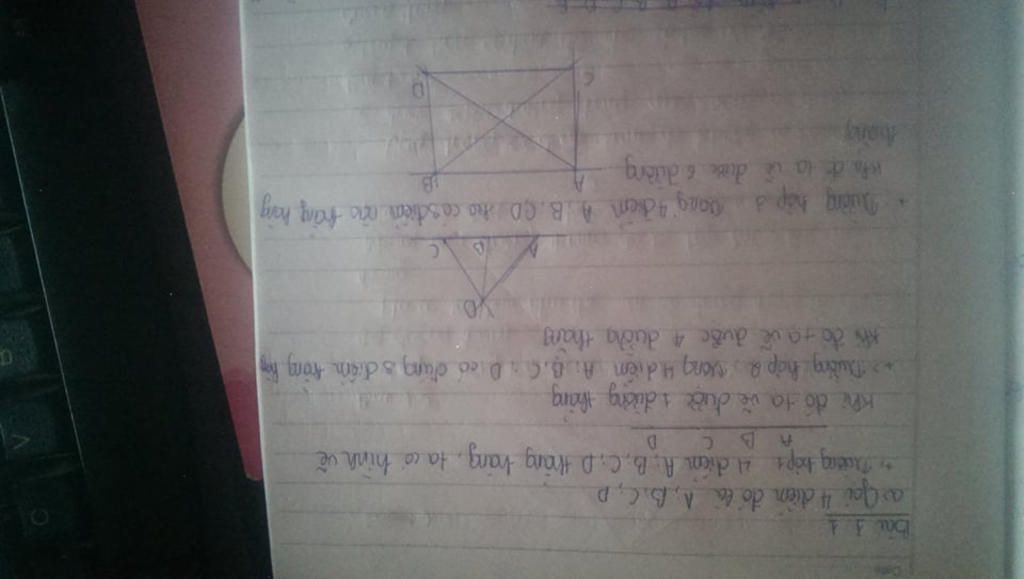 Bài 1:
a, Gọi 4 điểm đó là A, B, C, D
+, Trường hợp 1 4 điểm A, B, C, D thẳng hàng, ta có hình vẽ
A B C D
Khi đó ta vẽ được 1 đường thẳng
+, Trường hợp 2 trong 4 điểm A, B, C, D có đúng 3 điểm thẳng hàng
Khi đó ta vẽ được 4 đường thẳng
D
A B C
+ Trường hợp 3 trong 4 điểm A, B, C, D có 3 điểm nào thẳng hàng
Khi đó ta vẽ được 6 đường
thẳng
A B
C D